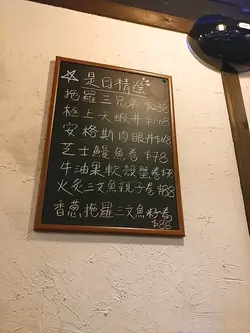 是日精選
拖羅三兄弟 $238
極上大蝦丼 $148
安格斯肉眼丼 $148
芝士鰻魚卷 $78
牛油果軟殼蟹卷
火炙三文魚親子卷 $88
香蔥拖羅三文魚籽卷
$88